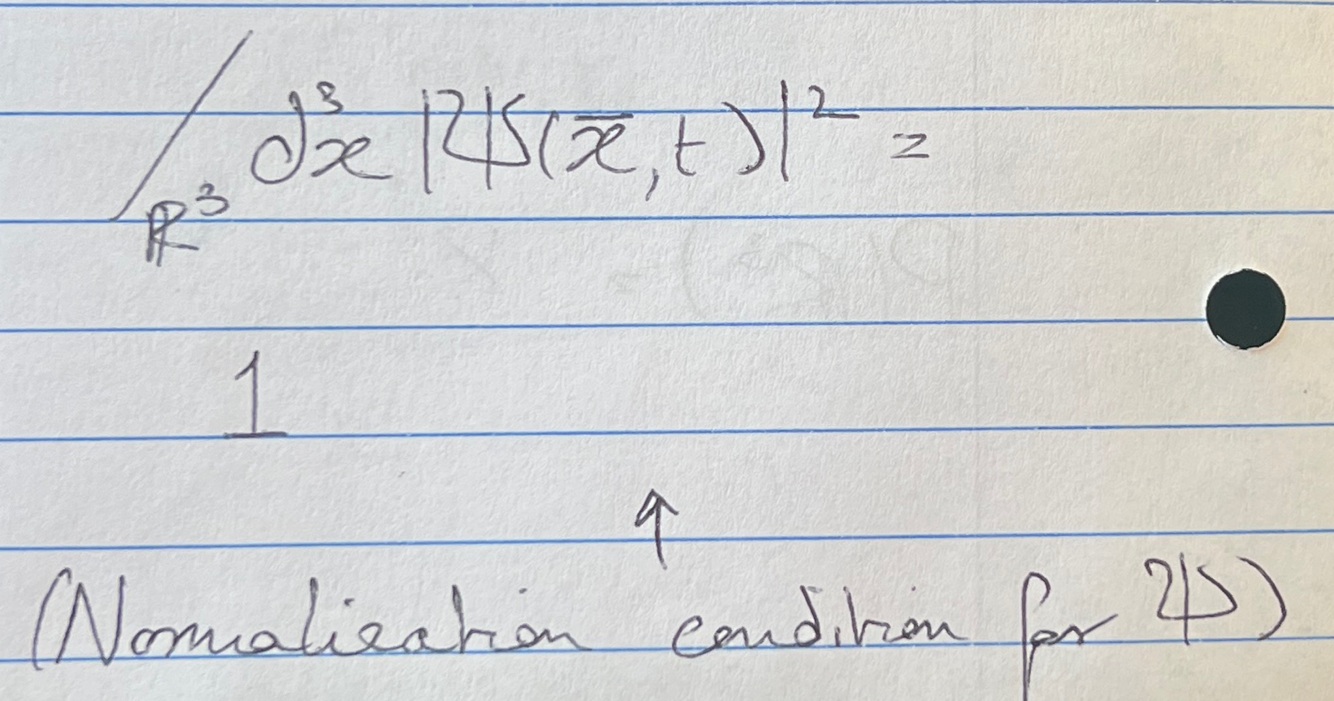 ∫_ℝ³ d³x |ψ(x̅,t)|² =
1
↑
(Normalisation condition for ψ)